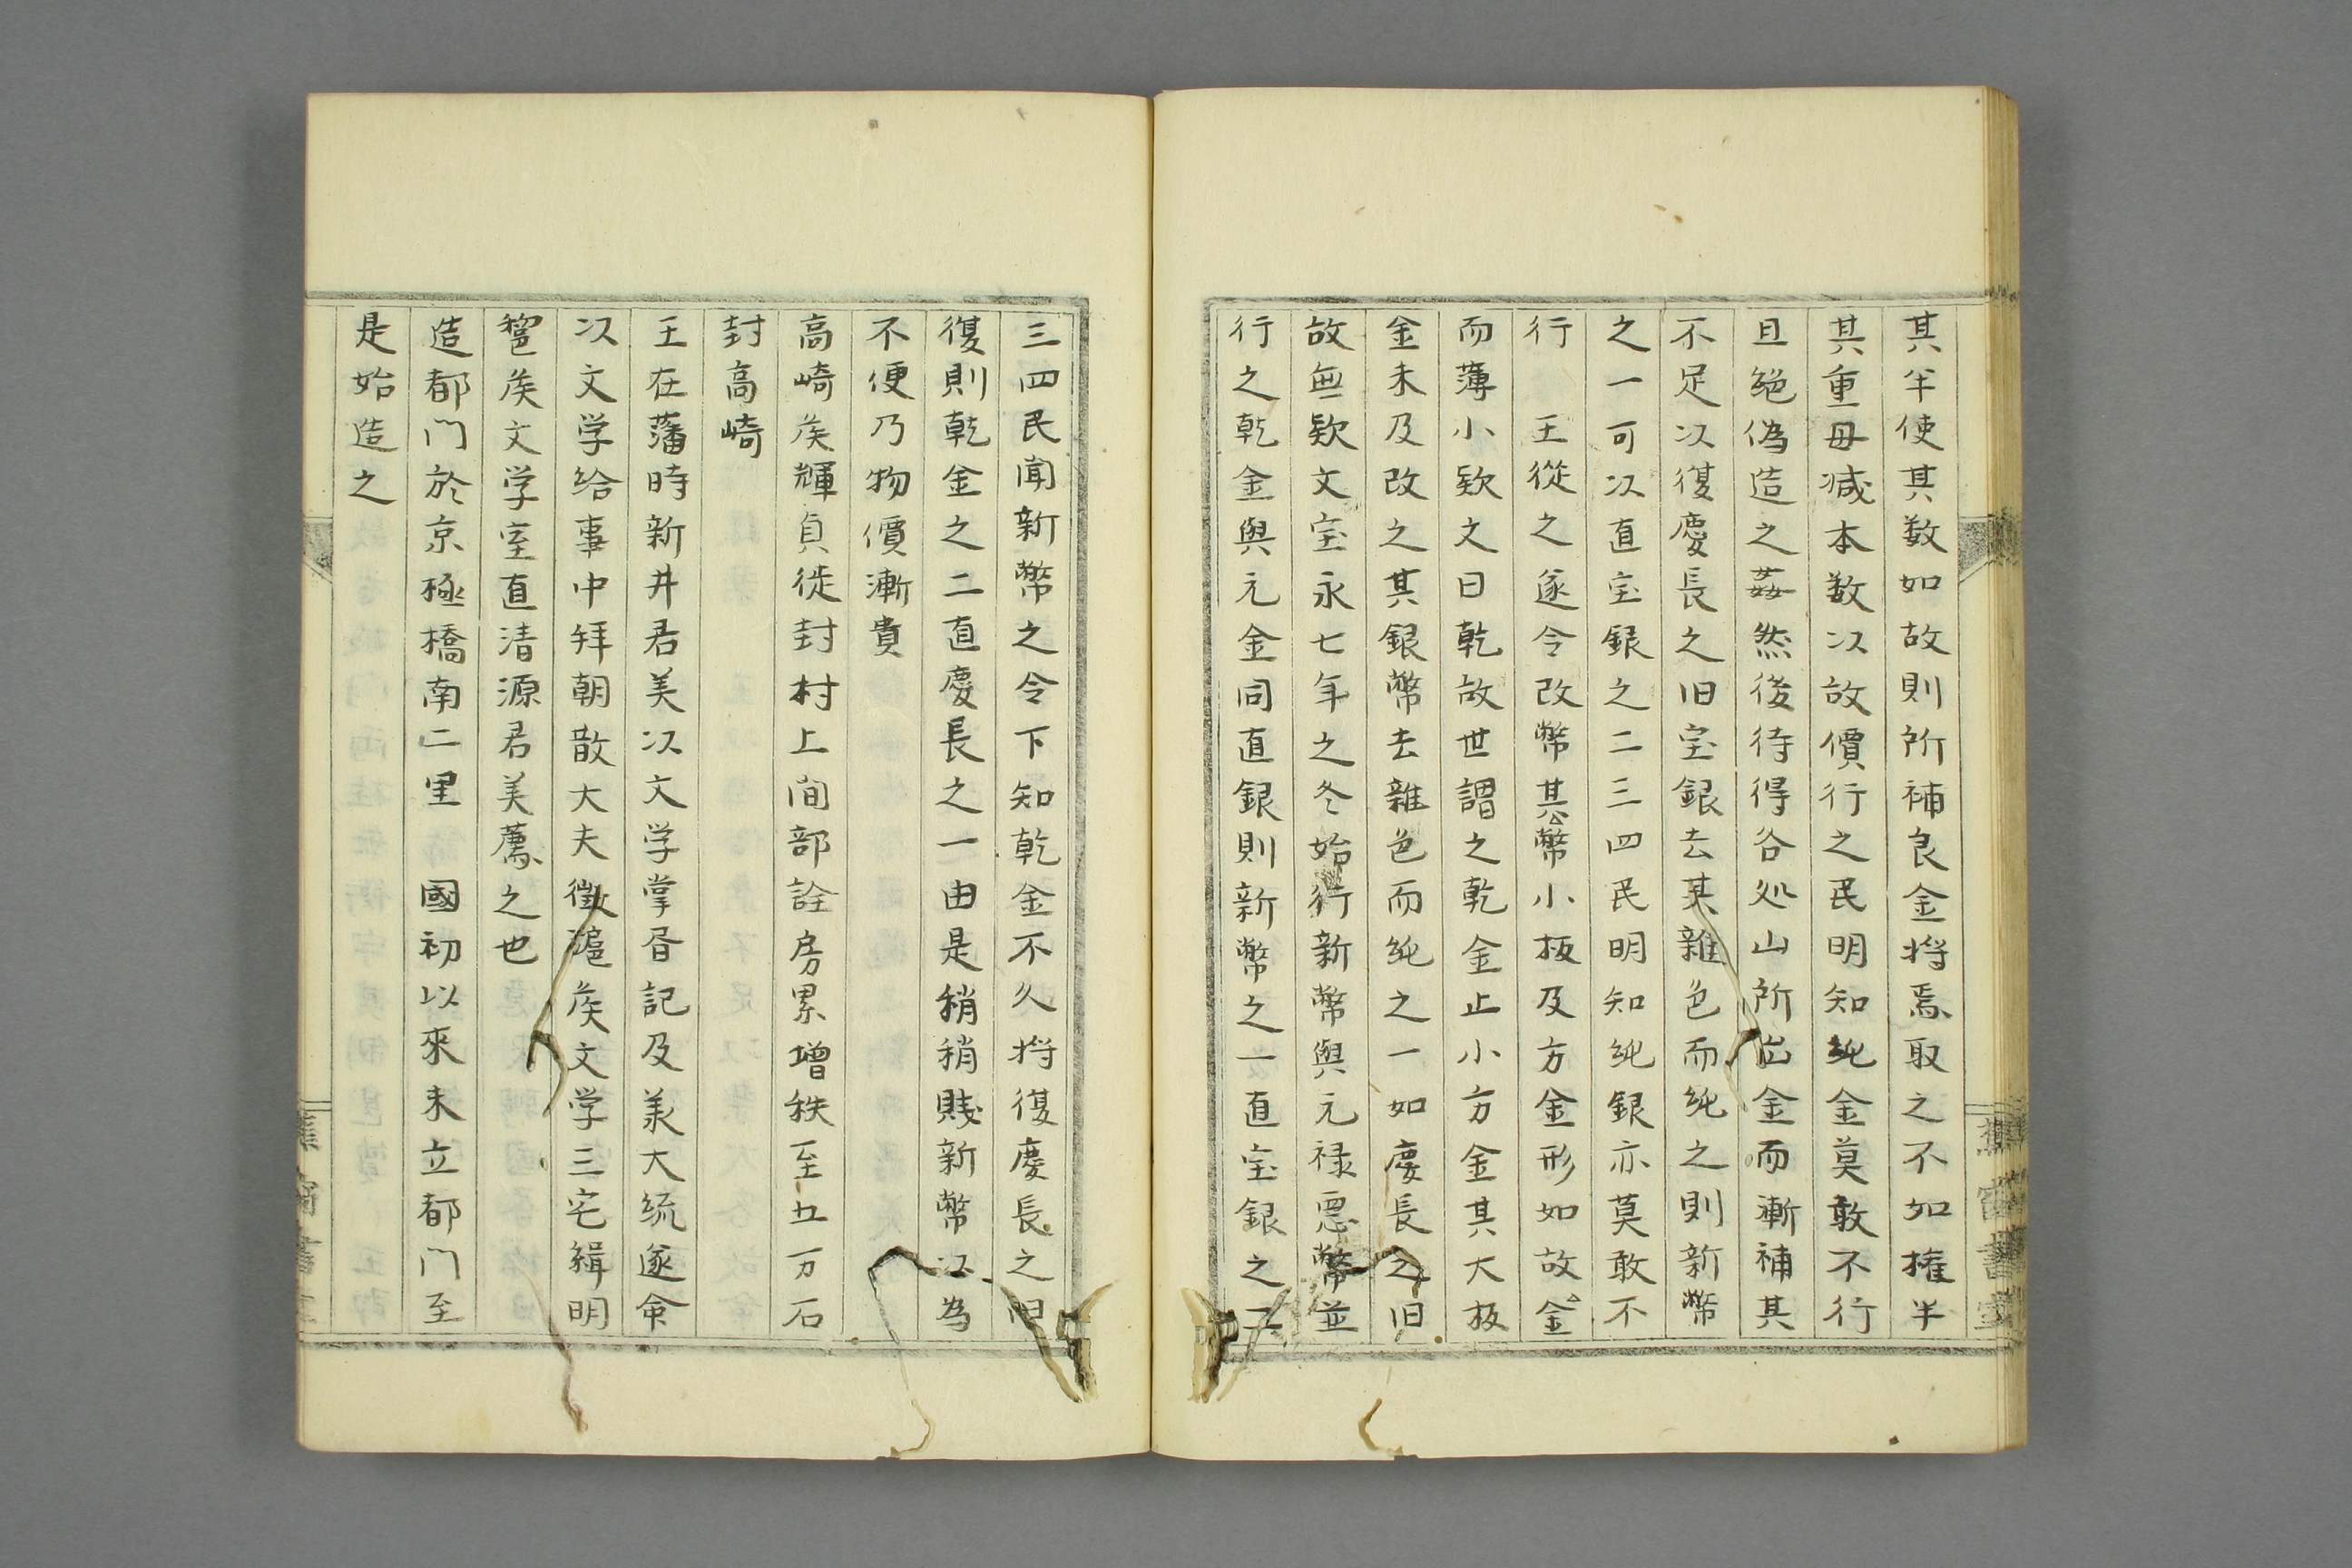 其半使其数如故則所補良金将焉取之不如権半
其重毋減本数以故價行之民明知純金莫敢不行
且絶偽造之姦然後待得各処山所出金而漸補其
不足以復慶長之旧宝銀去其雜色而純之則新幣
之一可以直宝銀之二三四民明知純銀亦莫敢不
行　王從之遂令改幣其公幣小板及方金形如故金
而薄小欵文曰乾故世謂之乾金止小方金其大板
金未及改之其銀幣去雜色而純之一如慶長之旧
故無欵文宝永七年之冬始行新幣與元禄惡幣並
行之乾金與元金同直銀則新幣之一直宝銀之二
三四民聞新幣之令下知乾金不久将復慶長之旧
復則乾金之二直慶長之一由是稍稍賎新幣以為
不便乃物價漸貴
高崎矦輝貞徙封村上间部詮房累增秩至五万石
封高崎
王在藩時新井君美以文学掌昏記及美大统遂命
以文学给事中拜朝散大夫徴　矦文学三宅緝明
　矦文学室直清源君美薦之也
造都门於京極橋南二里　國初以來未立都门至
是始造之